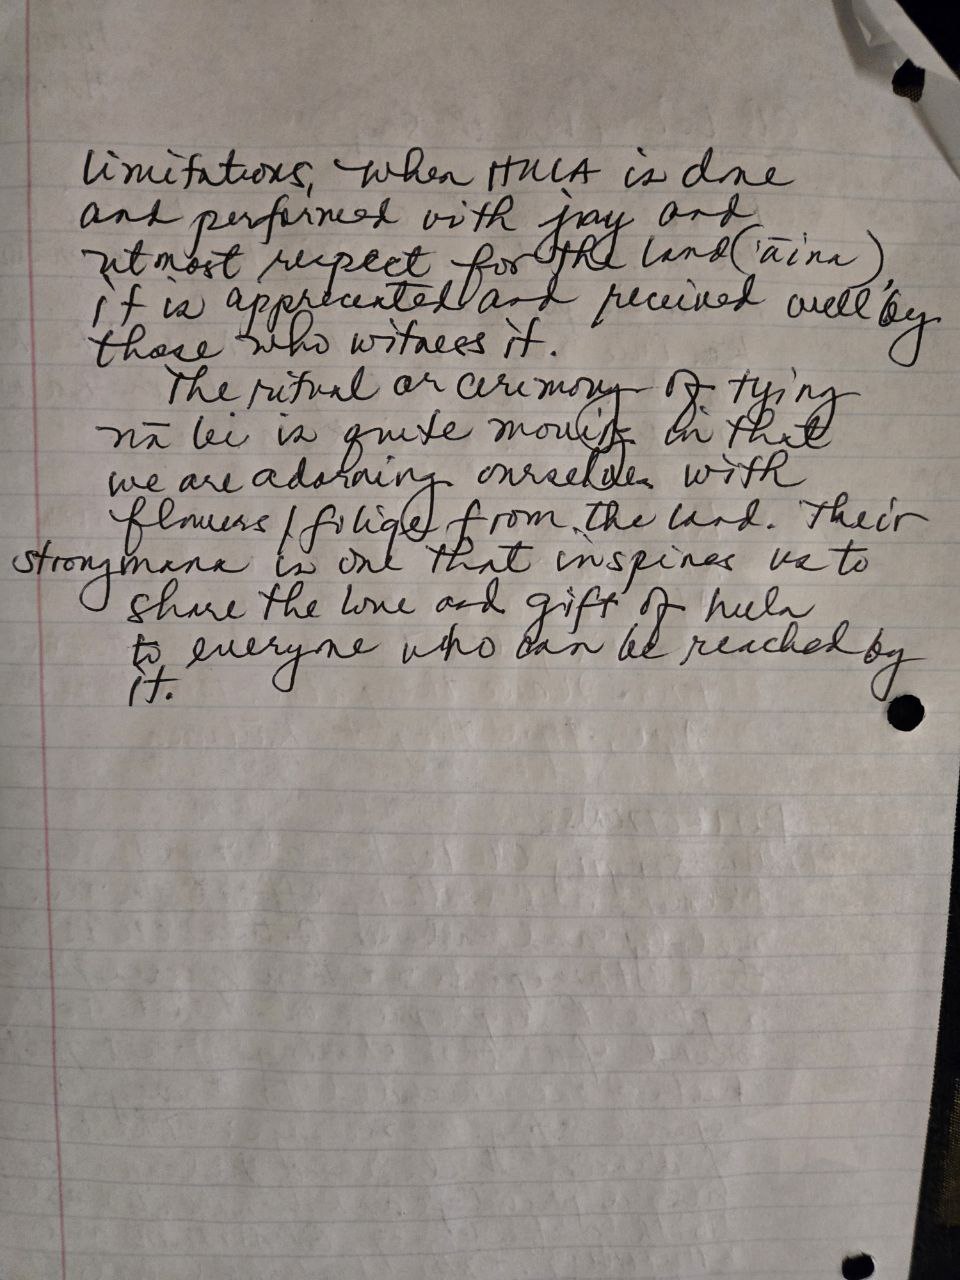 limitations, when HULA is done
and performed with joy and
utmost respect for the land ('āina),
it is appreciated and received well by
those who witness it.
The ritual or cerimony of tying
nā lei is quite moving in that
we are adorning ourselves with
flowers / foliqe from the land. Their
strong mana is one that inspires us to
share the love and gift of hula
to everyone who can be reached by
it.